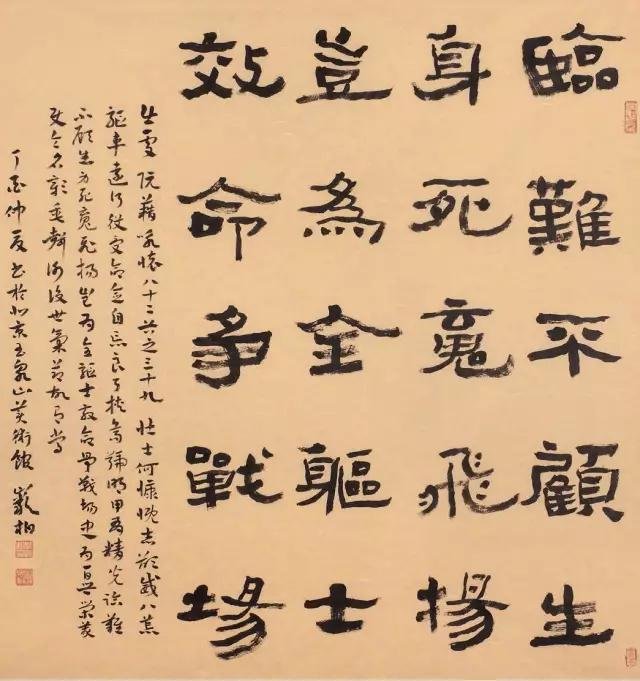 臨難不顧生
身死魂飛揚
豈為全軀士
效命爭戰場
出處 阮藉詠懷八十二首之三十九 壯士何慷慨志欲威八荒
驅車遠行役受命念自忘良弓挾烏號明甲有精光臨難
不顧生身死魂飛揚豈為全軀士效命爭戰場忠為百世榮義
使令名彰垂聲謝後世氣節故有常
丁酉仲夏書於北京玉泉山美術館